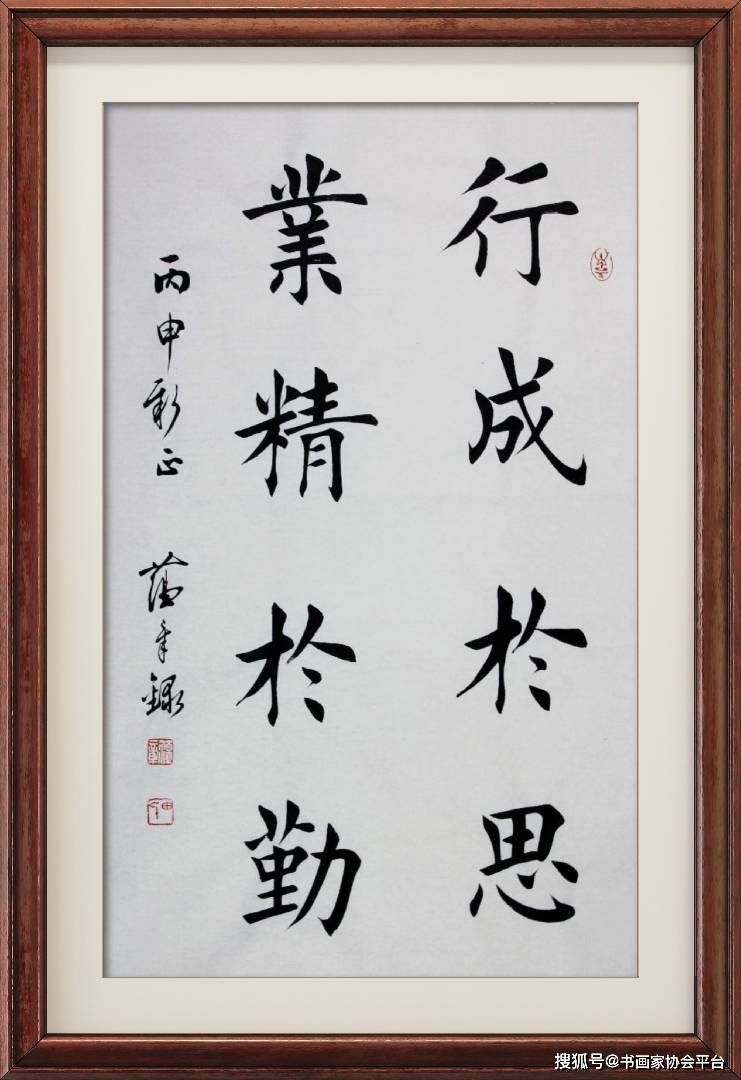 行成於思
業精於勤
丙申新正
搜狐号@书画家协会平台